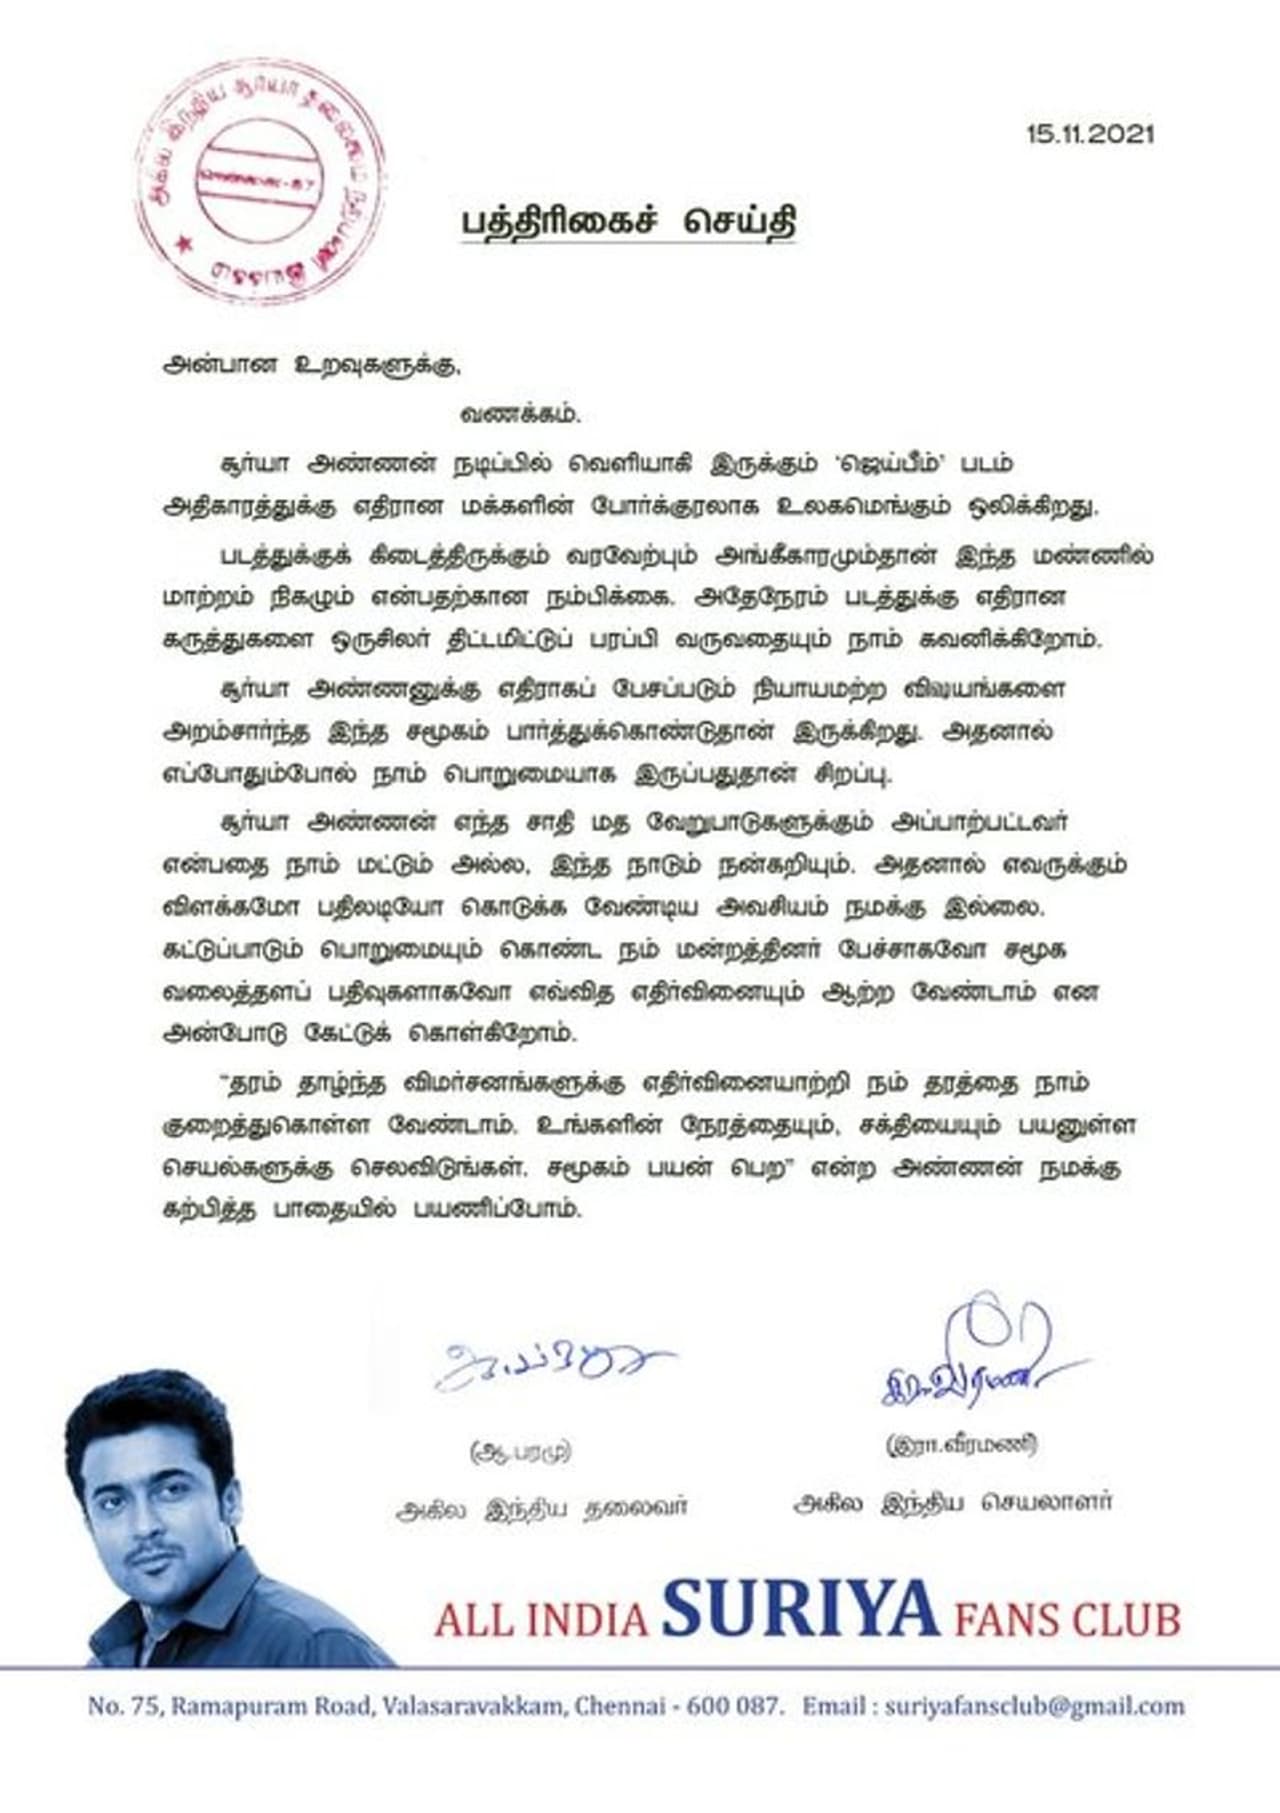 அகில இந்திய சூர்யா தலைமை நற்பணி இயக்கம்
15.11.2021
பத்திரிகைச் செய்தி
அன்பான உறவுகளுக்கு,
வணக்கம்.
சூர்யா அண்ணன் நடிப்பில் வெளியாகி இருக்கும் 'ஜெய்பீம்' படம்
அதிகாரத்துக்கு எதிரான மக்களின் போர்க்குரலாக உலகமெங்கும் ஒலிக்கிறது.
படத்துக்குக் கிடைத்திருக்கும் வரவேற்பும் அங்கீகாரமும்தான் இந்த மண்ணில்
மாற்றம் நிகழும் என்பதற்கான நம்பிக்கை. அதேநேரம் படத்துக்கு எதிரான
கருத்துகளை ஒருசிலர் திட்டமிட்டுப் பரப்பி வருவதையும் நாம் கவனிக்கிறோம்.
சூர்யா அண்ணனுக்கு எதிராகப் பேசப்படும் நியாயமற்ற விஷயங்களை
அறம்சார்ந்த இந்த சமூகம் பார்த்துக்கொண்டுதான் இருக்கிறது. அதனால்
எப்போதும்போல் நாம் பொறுமையாக இருப்பதுதான் சிறப்பு.
சூர்யா அண்ணன் எந்த சாதி மத வேறுபாடுகளுக்கும் அப்பாற்பட்டவர்
என்பதை நாம் மட்டும் அல்ல, இந்த நாடும் நன்கறியும். அதனால் எவருக்கும்
விளக்கமோ பதிலடியோ கொடுக்க வேண்டிய அவசியம் நமக்கு இல்லை.
கட்டுப்பாடும் பொறுமையும் கொண்ட நம் மன்றத்தினர் பேச்சாகவோ சமூக
வலைத்தளப் பதிவுகளாகவோ எவ்வித எதிர்வினையும் ஆற்ற வேண்டாம் என
அன்போடு கேட்டுக் கொள்கிறோம்.
"தரம் தாழ்ந்த விமர்சனங்களுக்கு எதிர்வினையாற்றி நம் தரத்தை நாம்
குறைத்துகொள்ள வேண்டாம். உங்களின் நேரத்தையும், சக்தியையும் பயனுள்ள
செயல்களுக்கு செலவிடுங்கள். சமூகம் பயன் பெற" என்ற அண்ணன் நமக்கு
கற்பித்த பாதையில் பயணிப்போம்.
இரா.வீரமணி
(ஆ.பரமு) (இரா.வீரமணி)
அகில இந்திய தலைவர் அகில இந்திய செயலாளர்
ALL INDIA SURIYA FANS CLUB
No. 75, Ramapuram Road, Valasaravakkam, Chennai - 600 087. Email : suriyafansclub@gmail.com